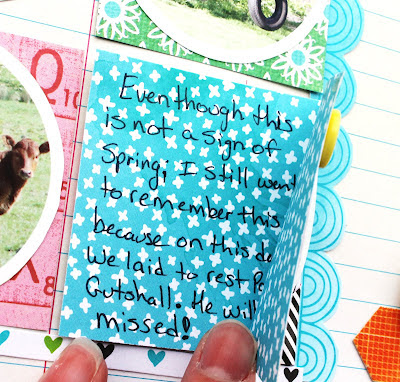 Q10
A8
Eventhough this
is not a sign of
Spring; I still want
to remember this
because on this
We laid to rest
Gutshall. He will
missed!